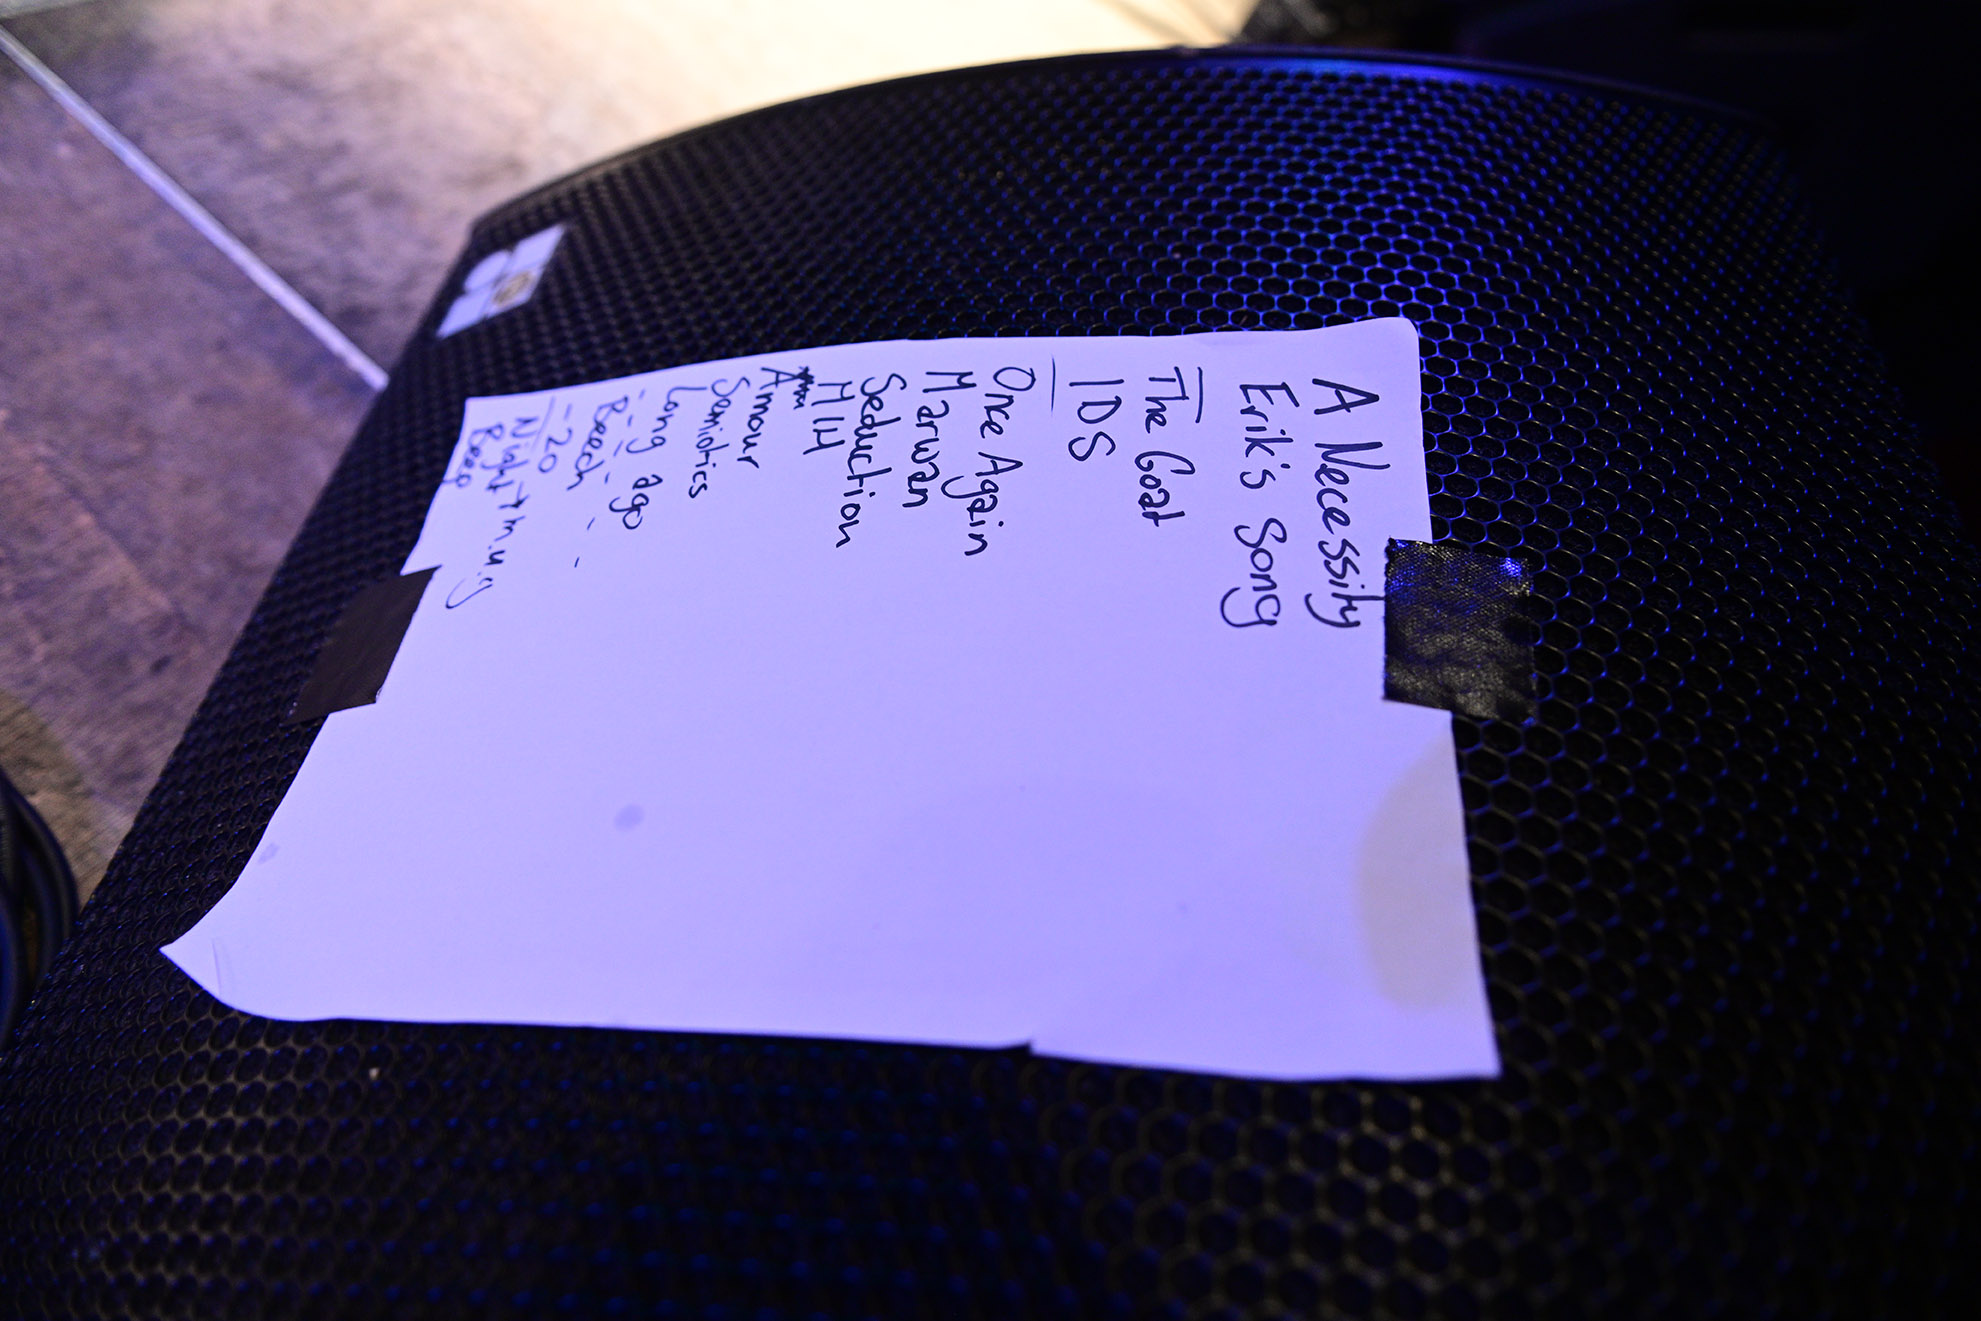 A Necessity
Erik's Song
The Goat
IDS
Once Again
Marwan
Seduction
MIH
Armour
Semiotics
Long ago
Beech
-20
Night Th.u.g
Beep